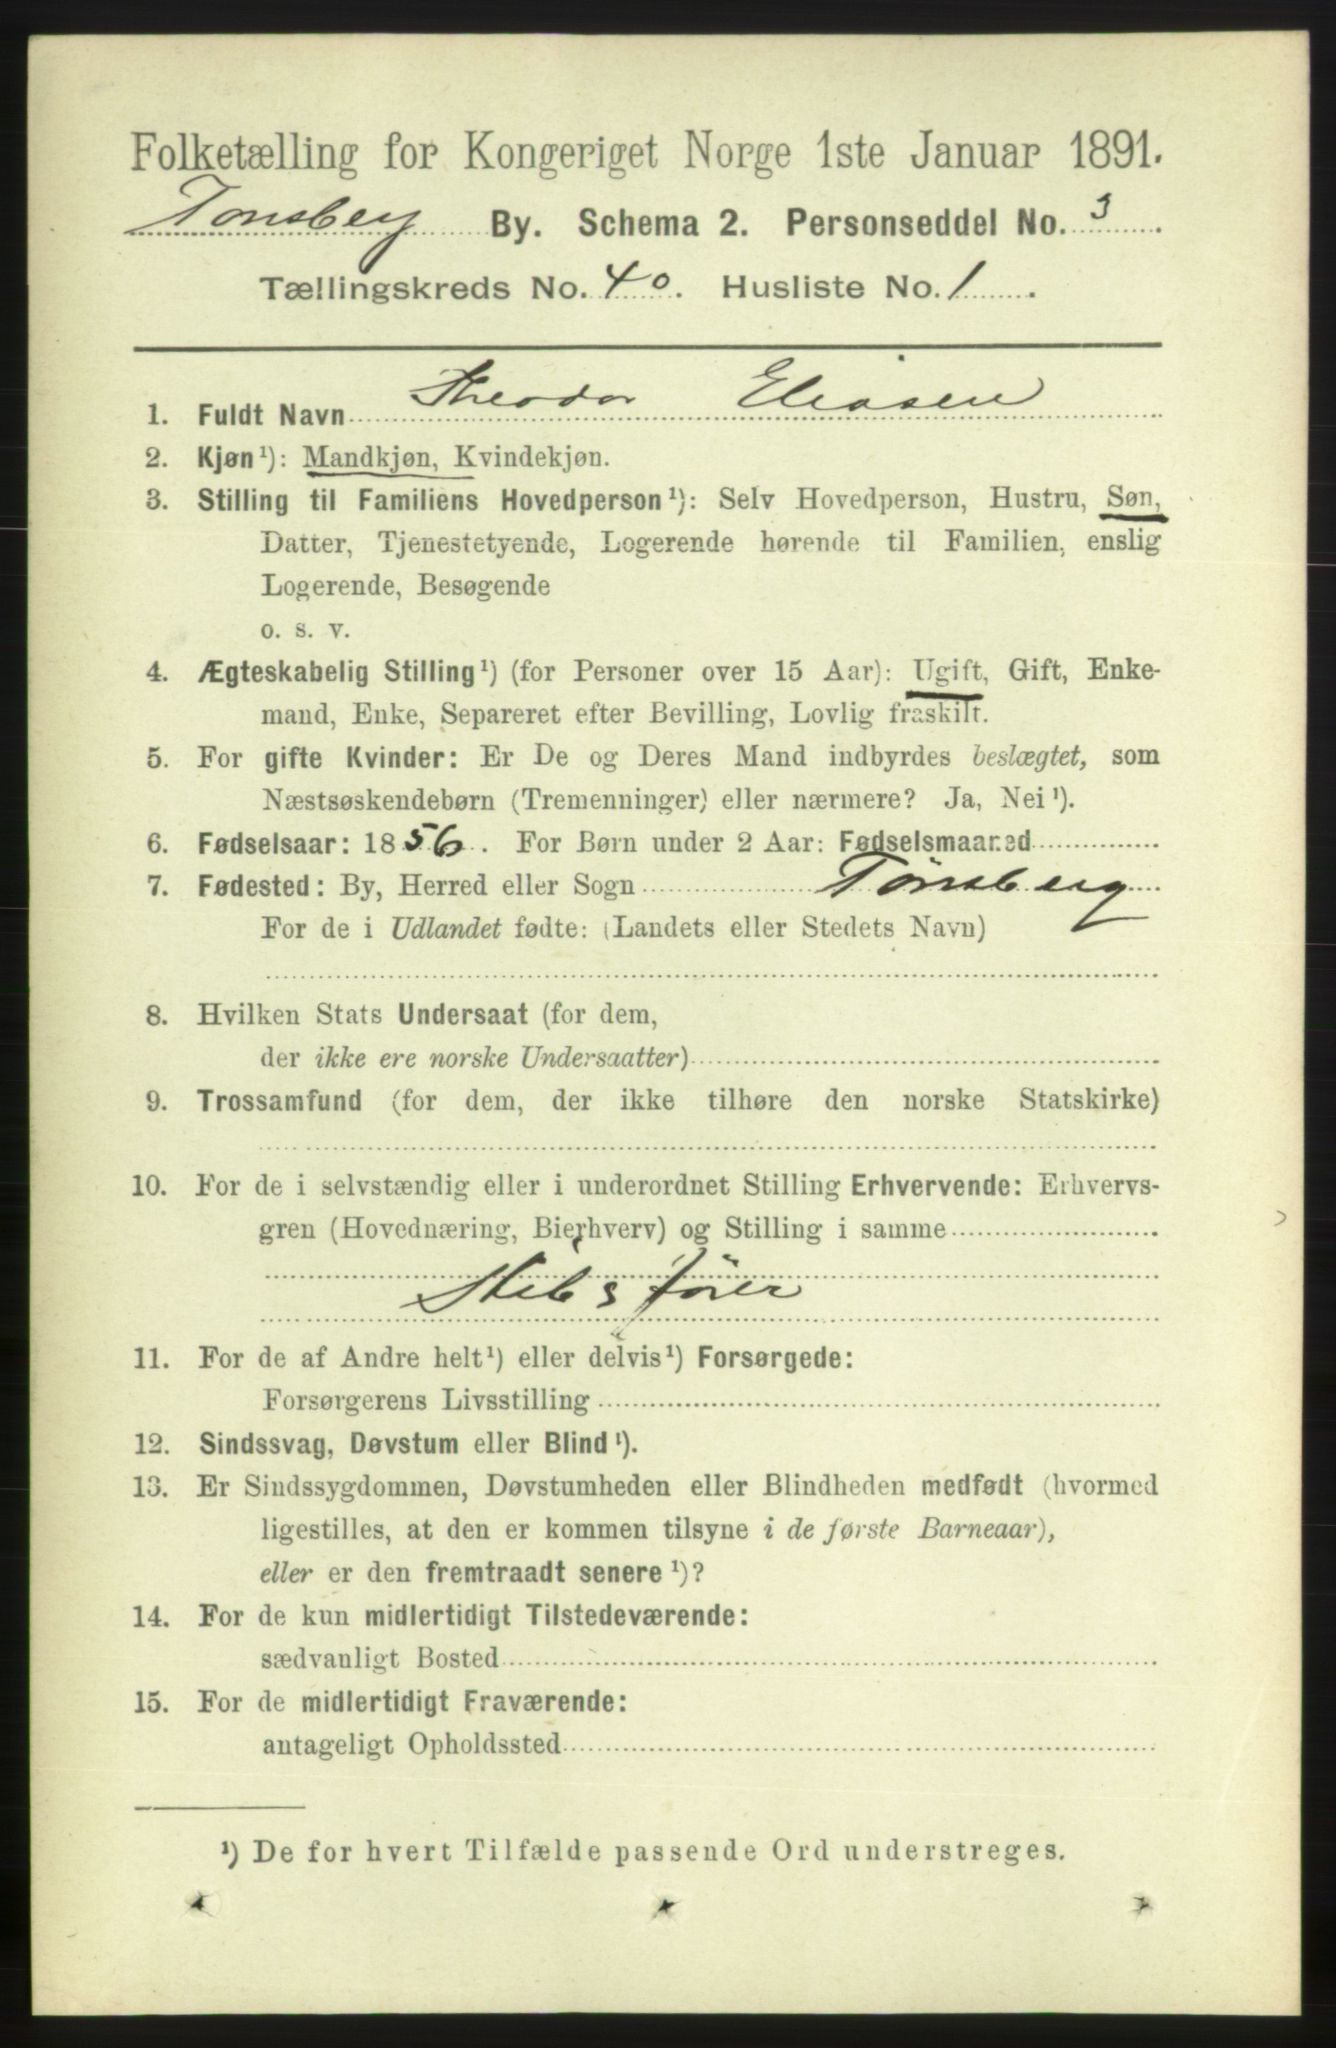 Folketælling for Kongeriget Norge 1ste Januar 1891.
Tonsberg By. Schema 2. Personseddel No. 3
Tællingskreds No. 40. Husliste No. 1.
1. Fuldt Navn Theodor Eliasen
2. Kjøn¹): Mandkjøn, Kvindekjøn.
3. Stilling til Familiens Hovedperson¹): Selv Hovedperson, Hustru, Søn,
Datter, Tjenestetyende, Logerende hørende til Familien, enslig
Logerende, Besøgende
o. s. v.
4. Ægteskabelig Stilling¹) (for Personer over 15 Aar): Ugift, Gift, Enke-
mand, Enke, Separeret efter Bevilling, Lovlig fraskilt.
5. For gifte Kvinder: Er De og Deres Mand indbyrdes beslægtet, som
Næstsøskendebørn (Tremenninger) eller nærmere? Ja, Nei¹).
6. Fødselsaar: 1856. For Børn under 2 Aar: Fødselsmaaned
7. Fødested: By, Herred eller Sogn Tønsberg
For de i Udlandet fødte: (Landets eller Stedets Navn)
8. Hvilken Stats Undersaat (for dem,
der ikke ere norske Undersaatter)
9. Trossamfund (for dem, der ikke tilhøre den norske Statskirke)
10. For de i selvstændig eller i underordnet Stilling Erhvervende: Erhvervs-
gren (Hovednæring, Bierhverv) og Stilling i samme
Skibsfører
11. For de af Andre helt¹) eller delvis¹) Forsørgede:
Forsørgerens Livsstilling
12. Sindssvag, Døvstum eller Blind¹).
13. Er Sindssygdommen, Døvstumheden eller Blindheden medfødt (hvormed
ligestilles, at den er kommen tilsyne i de første Barneaar),
eller er den fremtraadt senere¹)?
14. For de kun midlertidigt Tilstedeværende:
sædvanligt Bosted
15. For de midlertidigt Fraværende:
antageligt Opholdssted
¹) De for hvert Tilfælde passende Ord understreges.